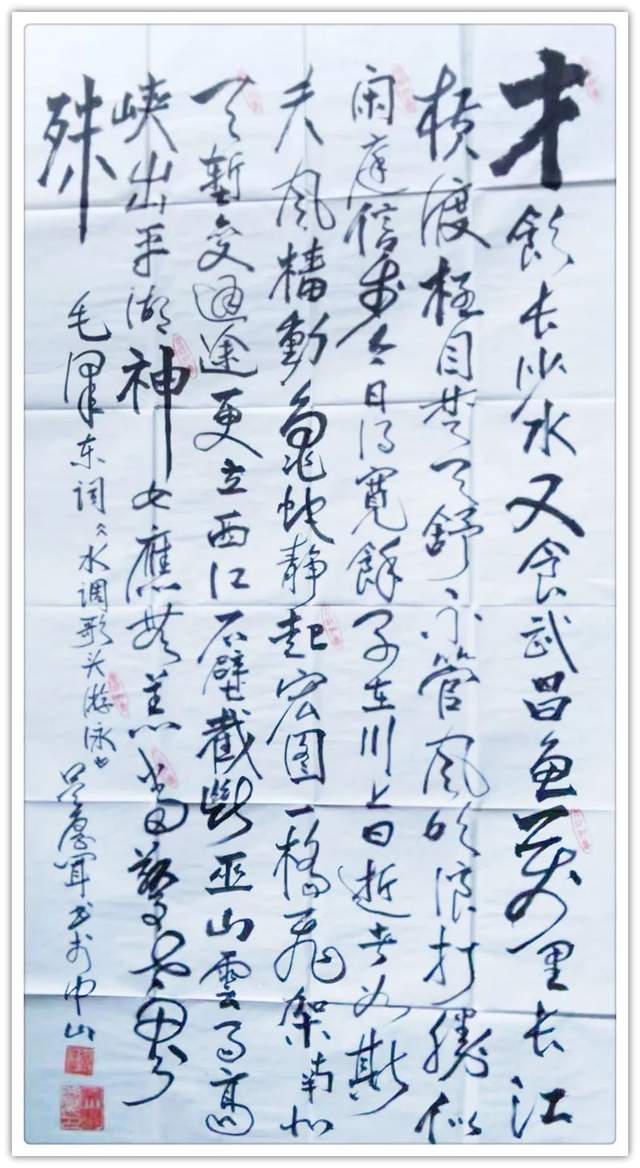 才飲长沙水又食武昌鱼萬里长江
横渡极目楚天舒不管风吹浪打勝似
闲庭信步今日得寬餘子在川上曰逝者如斯
夫风樯動龜蛇静起宏图一橋飞架南北
天塹变通途更立西江石壁截断巫山雲雨高
峡出平湖神女應無恙当驚世界
殊
毛泽东词《水调歌头游泳》书于中山